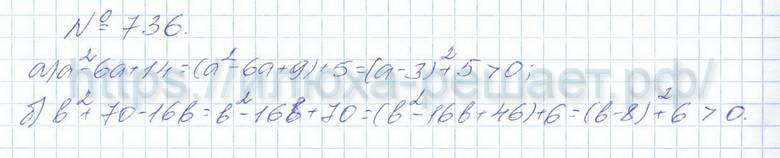 № 736.
а) a²-6a+14=(a²-6a+9)+5=(a-3)²+5>0;
https://илюха-решает.рф/
б) b²+70-16b=b²-16b+70=(b²-16b+46)+6=(b-8)²+6>0.